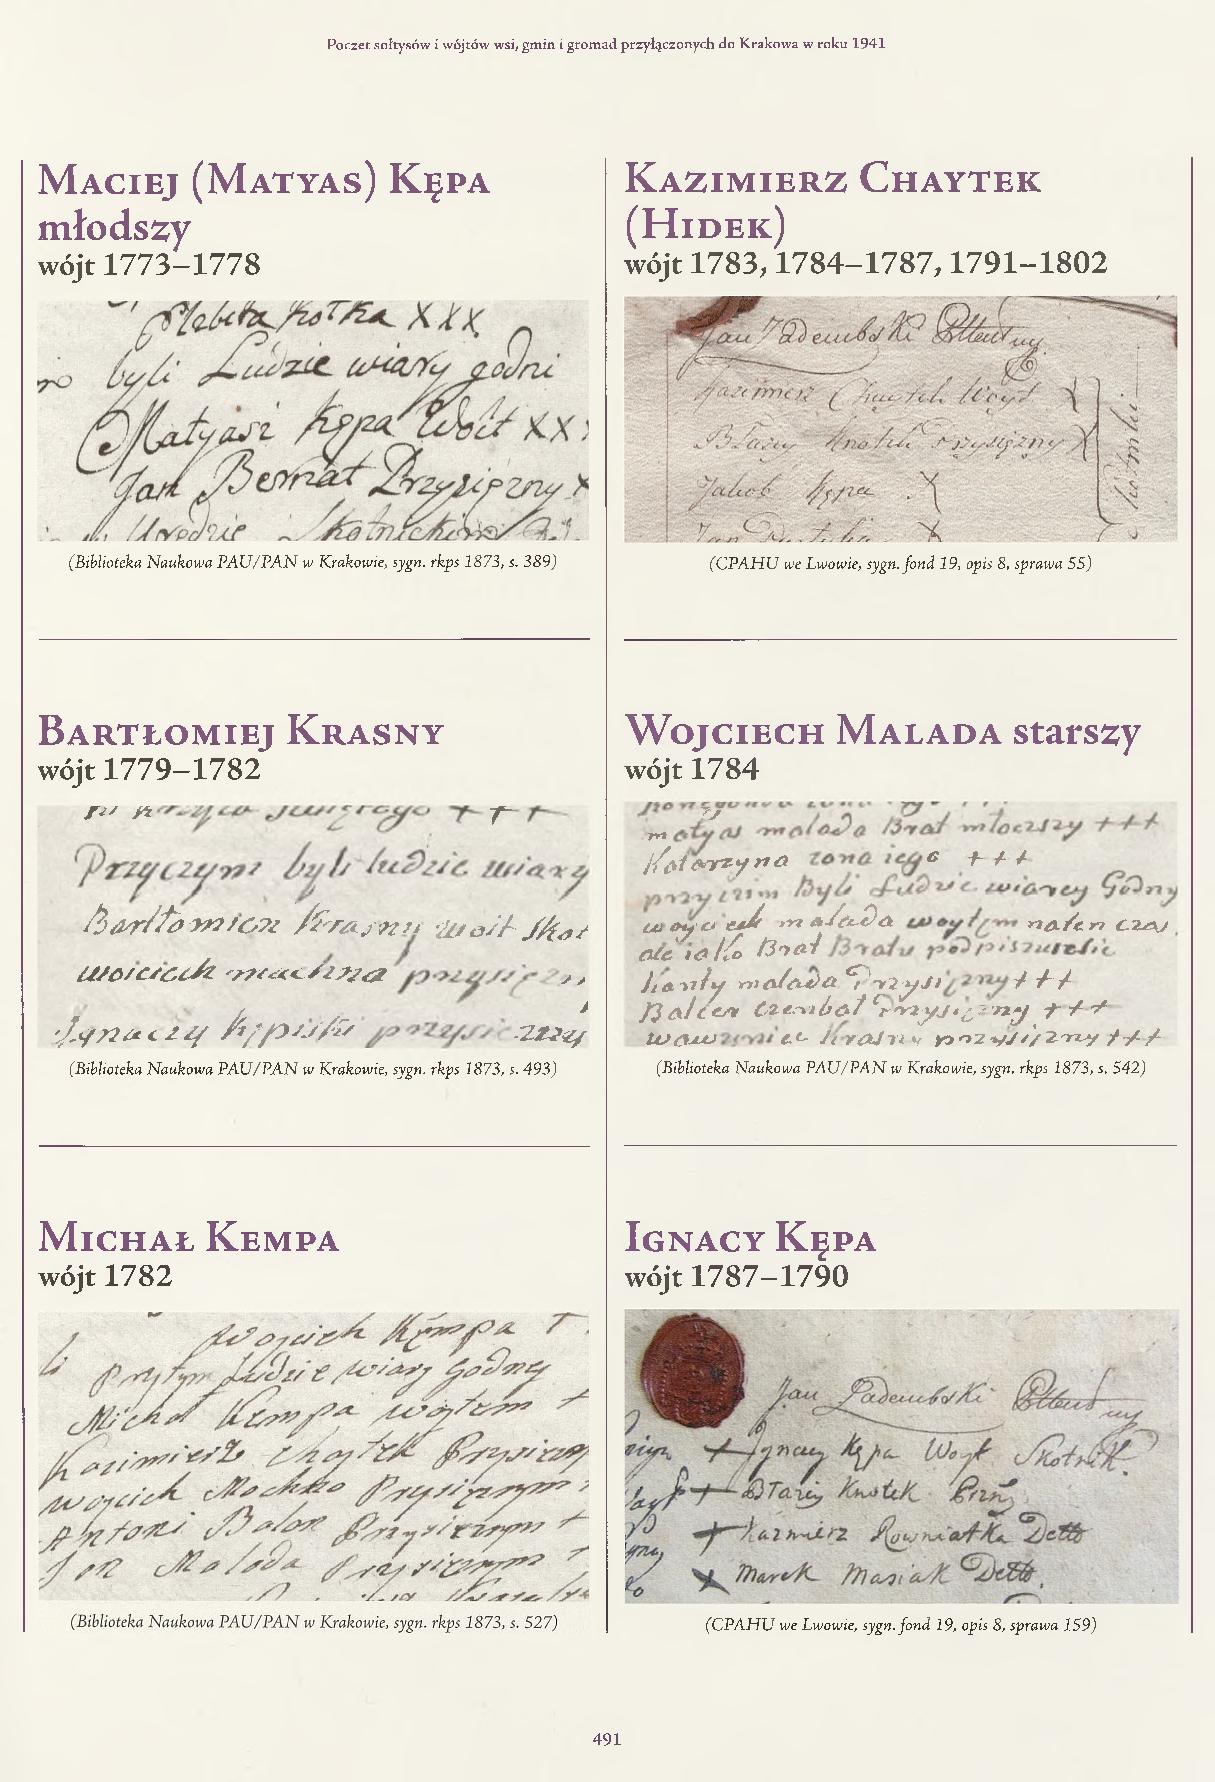 Poczet sołtysów i wójtów wsi, gmin i gromad przyłączonych do Krakowa w roku 1941
Maciej (Matyas) Kępa
młodszy
wójt 1773–1778
Kotka XXX
byli Ludzie wiary godni
Matyasz Kępa Woit XXX
Jan Bernat Przysięzny X
(Biblioteka Naukowa PAU/PAN w Krakowie, sygn. rkps 1873, s. 389)
Bartłomiej Krasny
wójt 1779–1782
+++
Przyczym byli ludzie wiary
Bartłomiej Krasny woit Skot
woiciech machna
Ignaczy
(Biblioteka Naukowa PAU/PAN w Krakowie, sygn. rkps 1873, s. 493)
Michał Kempa
wójt 1782
Wojcieh Kempa +
li Prytym Ludzie wiary Godney
Michał Kempa wojtem +
Kazimierz Chajtek
Wojcich
Antoni Balon
Jan Maloda
(Biblioteka Naukowa PAU/PAN w Krakowie, sygn. rkps 1873, s. 527)
Kazimierz Chaytek
(Hidek)
wójt 1783, 1784–1787, 1791–1802
Jan Zadembski
Kazimierz Chaytek Woyt X
Błazey Knotek Przysięzny X
Jakob Kępa X
(CPAHU we Lwowie, sygn. fond 19, opis 8, sprawa 55)
Wojciech Malada starszy
wójt 1784
matyas malada Brat młoczszy +++
Katarzyna zona iego +++
przyczim Byli Ludzie wiarey Godny
woyciech malada woytem naten czas
ale iako Brat Bratu podpiszuesie
Kanty malada Przysięzny +++
Balcer Czembal Przysięzny +++
wawrzeniec Krasny przysięzny +++
(Biblioteka Naukowa PAU/PAN w Krakowie, sygn. rkps 1873, s. 542)
Ignacy Kępa
wójt 1787–1790
Jan Zadembski
+ Jgnacy Kępa Woyt Skotnik.
+ Błazey Knotek
+ Kazmierz Rowniatka Detto
X Marek Masiak Detto.
(CPAHU we Lwowie, sygn. fond 19, opis 8, sprawa 159)
491